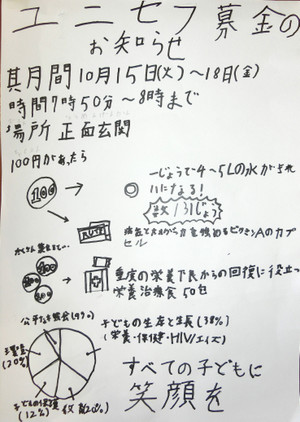 ユニセフ募金の
お知らせ
其月間10月15日(火)〜18日(金)
時間7時50分〜8時まで
場所 正面玄関
100円があったら
100
一じょうで4〜5Lの水がきれ
いになる!
病気とたたかう力を強めるビタミンAのカプ
セル
100
100
100
重度の栄養不良からの回復に役立つ
栄養治療食50包
公平な社会(9%)
子どもの生存と生長(38%)
(栄養・保健・HIV/エイズ)
(20%)
子どもの保護
(12%)
すべての子どもに
笑顔を